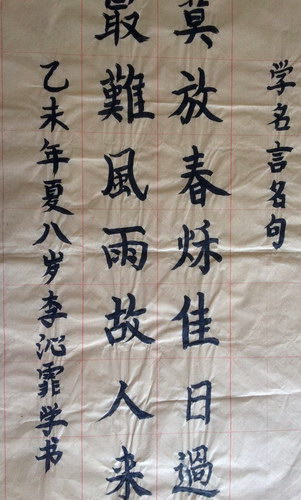 学名言名句
莫放春秌佳日過
最難風雨故人来
乙未年夏八岁李沁霏学书